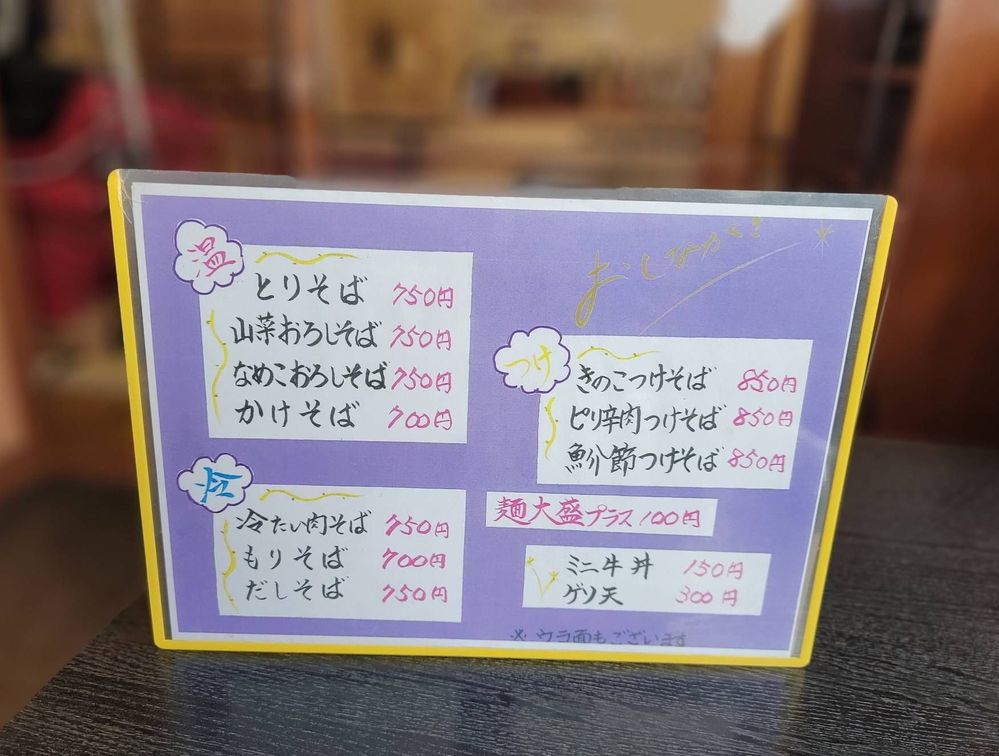 おしながき
温
とりそば 750円
山菜おろしそば 750円
なめこおろしそば 750円
かけそば 700円
冷
冷たい肉そば 750円
もりそば 700円
だしそば 750円
つけ
きのこつけそば 850円
ピリ辛肉つけそば 850円
魚介節つけそば 850円
麺大盛プラス100円
ミニ牛丼 150円
ゲソ天 300円
※ウラ面もございます